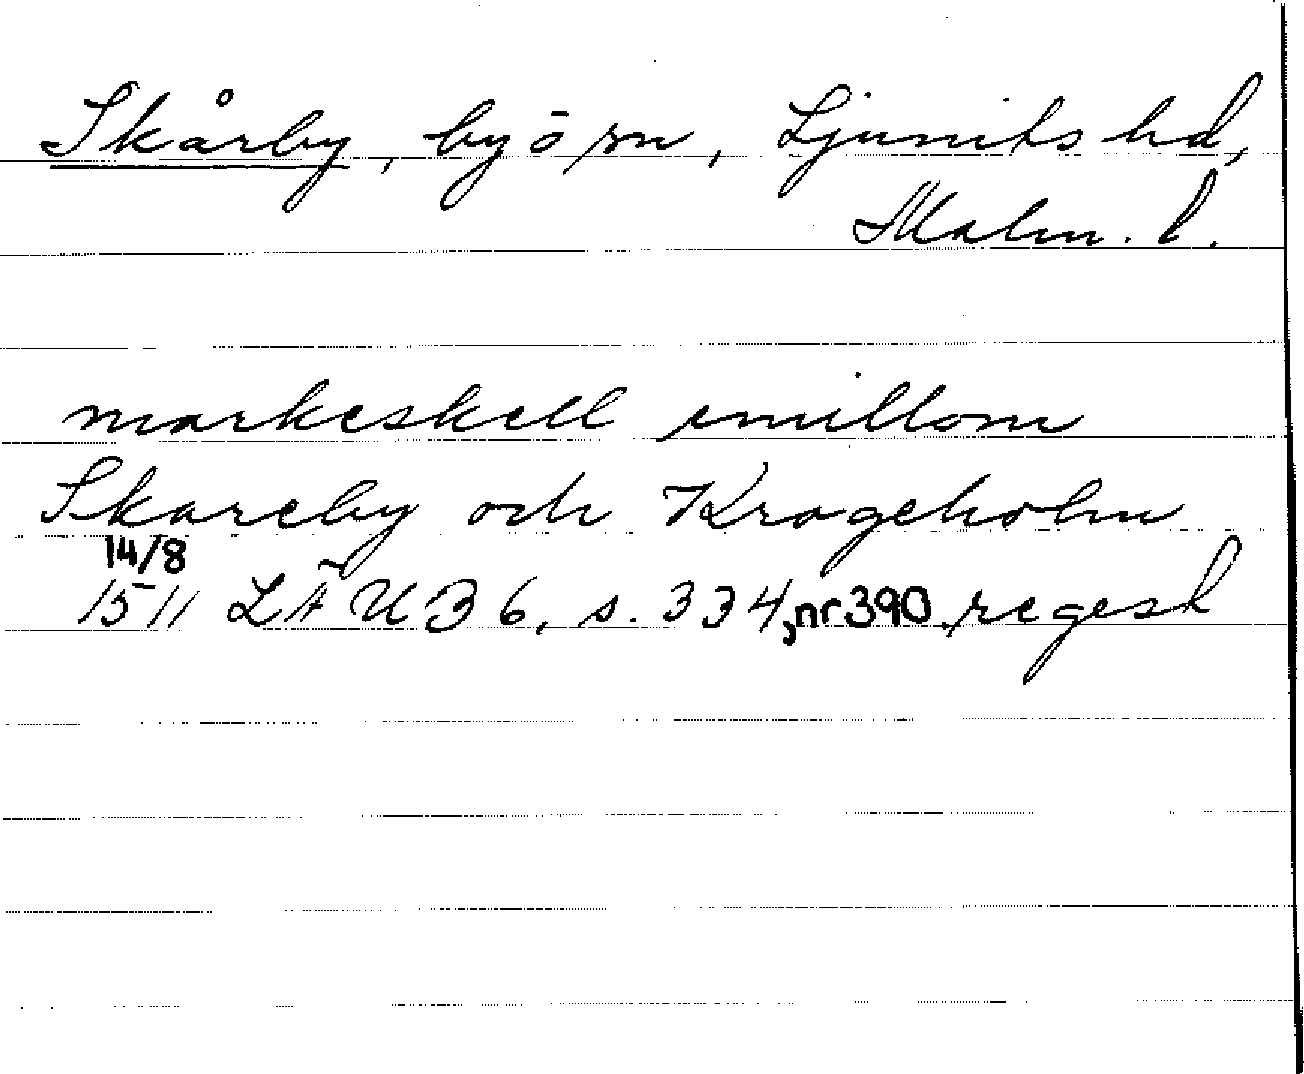 Skårby, by ö sn, Ljunits hd,
Malm. l.
markeskell emillom
Skareby och Krageholm
14/8
1511 LÄUB 6, s. 334, nr 390. regest